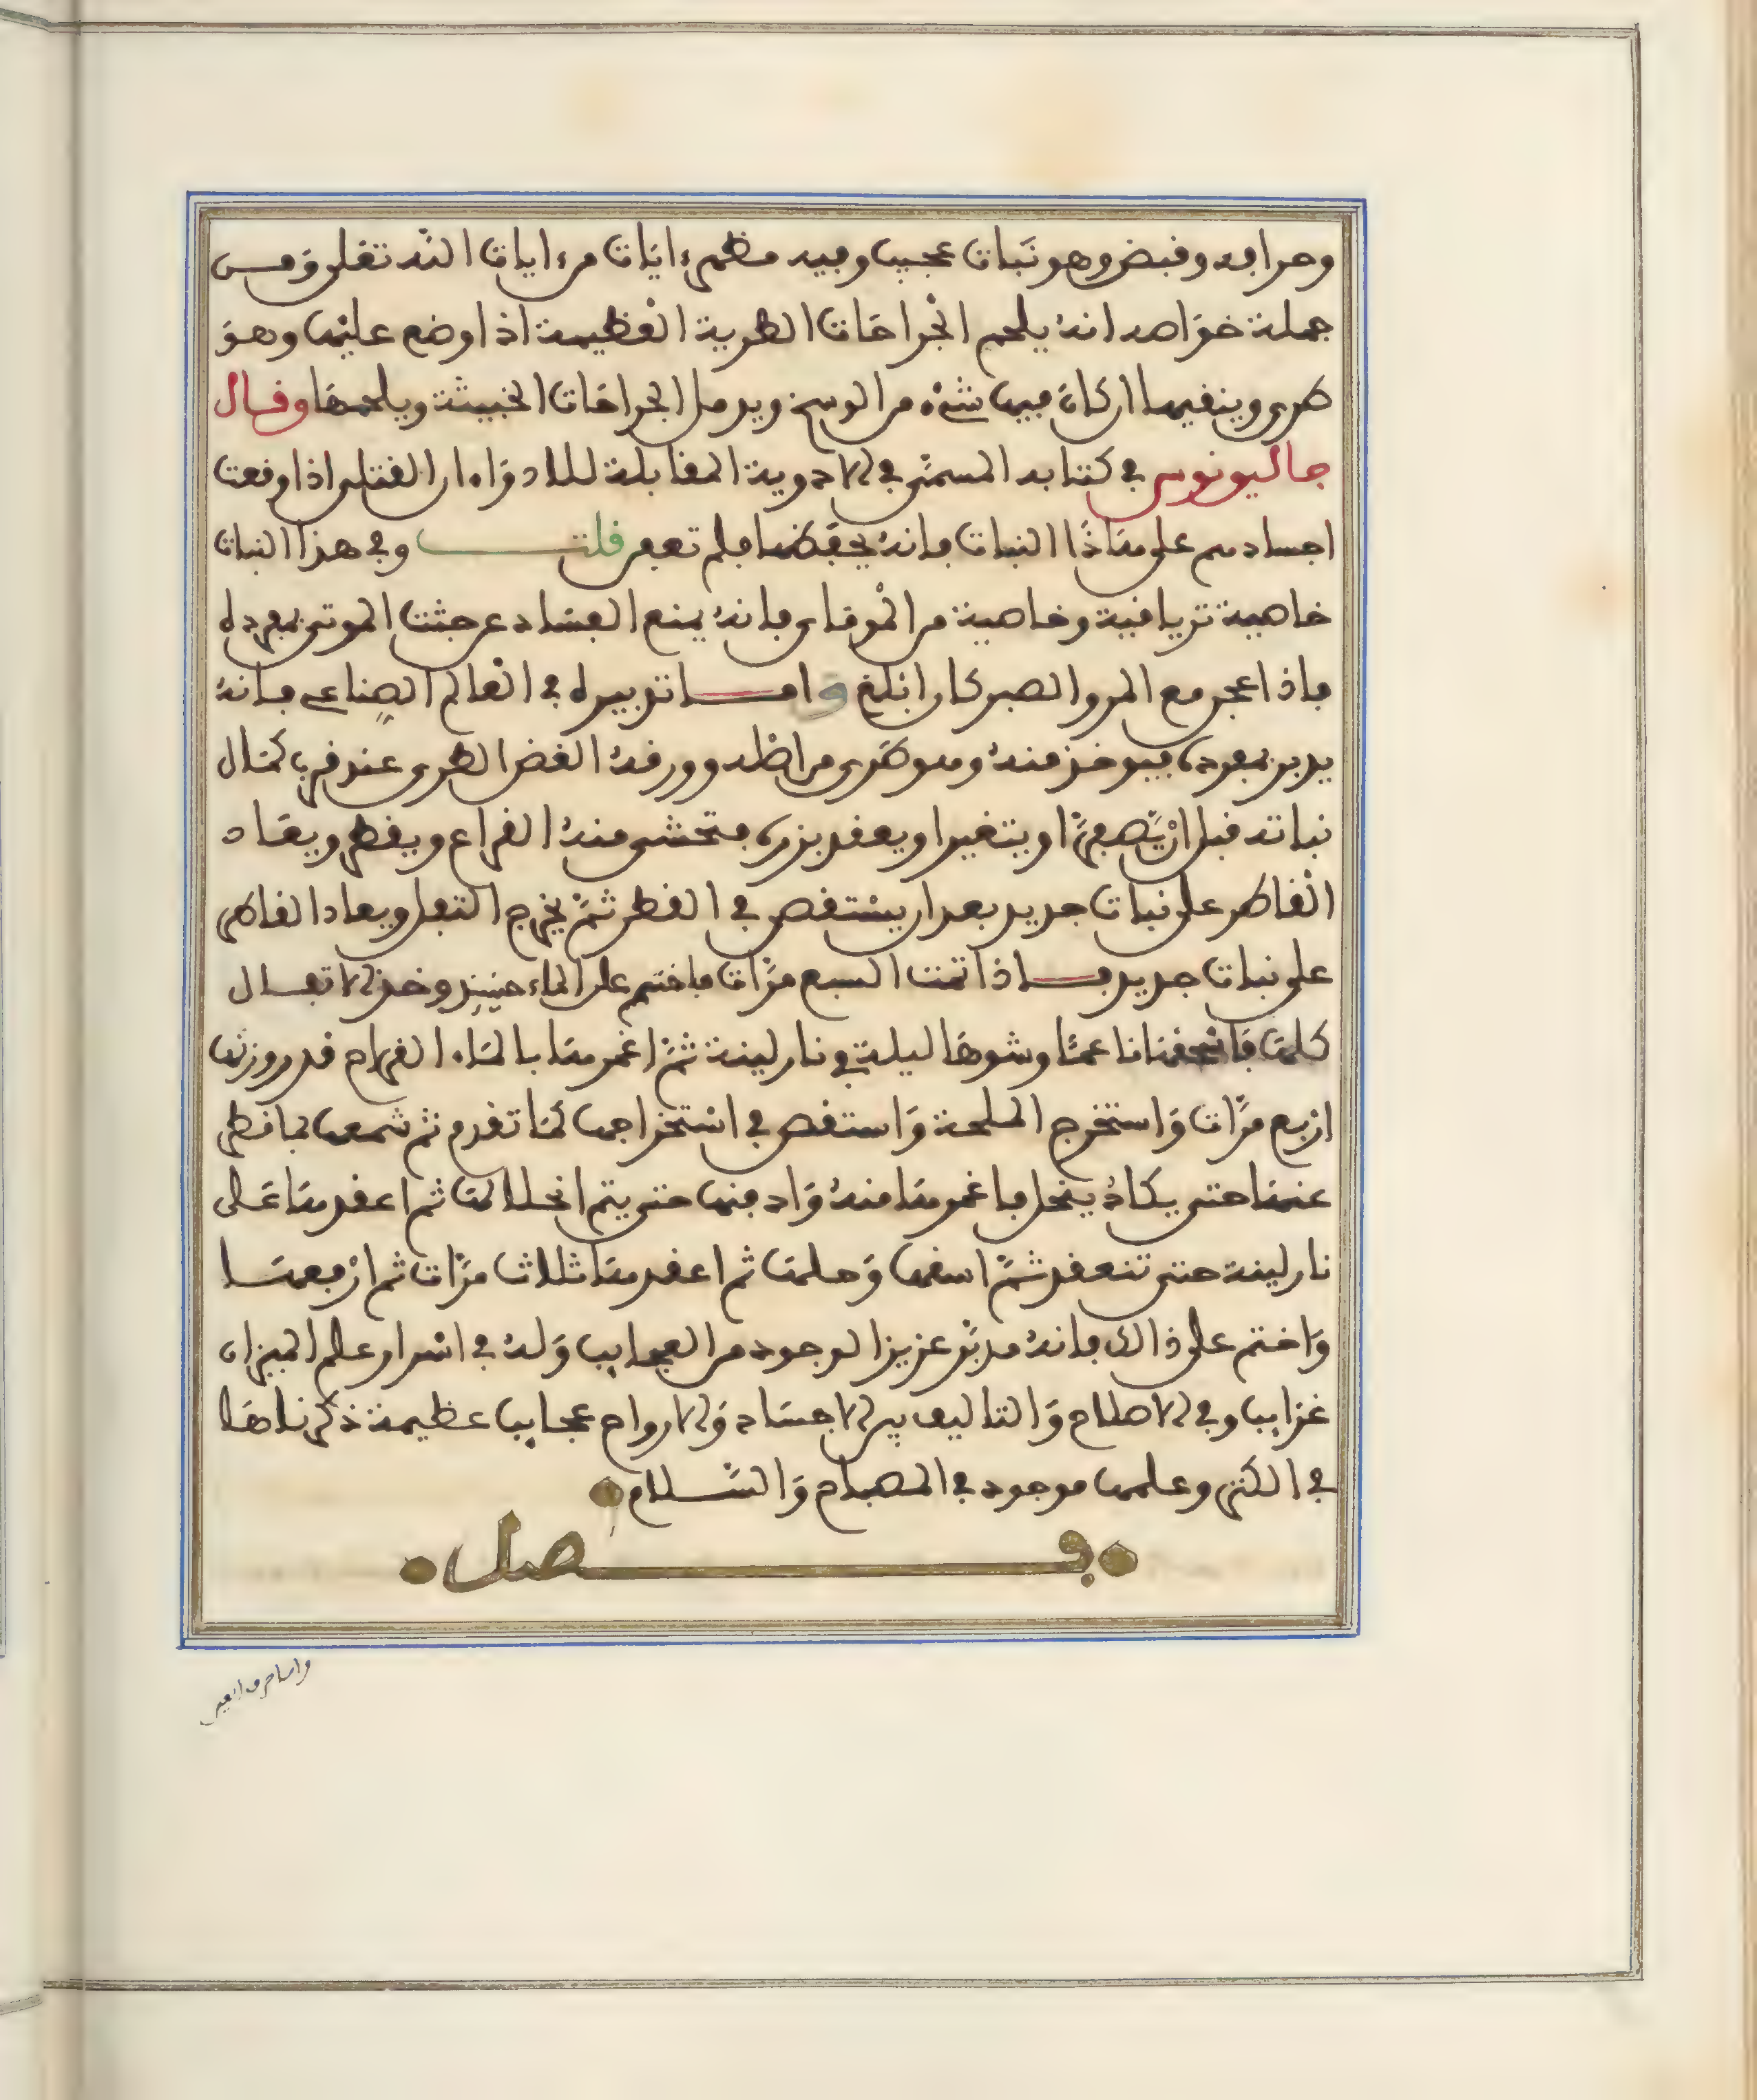 وحرافة وقبض وهو نبات عجيب وفيه مظهر ءايات من ءايات الله تعلى ومن
جملة خواصه انه يلحم الجراحات الطرية العظيمة اذا وضع عليها وهو
طرى وينقيها ان كان فيها شىء من الوسخ ويدمل الجراحات الخبيثة ويلحمها وقال
جاليونوس في كتابه المسمى في الادوية المقابلة للادواء ان القتلى اذا وقعت
اجسادهم على هذا النبات فانه يحفظها فلم تعفن قلت وفي هذا النبات
خاصية ترياقية وخاصية من الموميا فانه يمنع الفساد عن جثث الموتى بمفرده
فاذا اعجن مع المر والصبر كان ابلغ واما تدبيره في العالم الصناعى فانه
يدبر بمفرده فيوخذ منه وهو طرى من اصله وورقه الغض الطرى عند قرب كمال
نباته قبل ان يصفر او يتغير او يعقد بزره فتحشى منه القراع ويقطر ويعاد
القاطر على نبات جديد بعد ان يستقصى في القطر ثم يخرج التفل ويعاد القاطر
على نبات جديد فاذا تمت السبع مرات فاختم على الماء حينيذ وخذ الاتفال
كلها فاسحقها ناعما وشوها ليلة في نار لينة ثم اغمرها بالماء القراح قدر وزنها
اربع مرات واستخرج الملحة واستقص في استخراجها كما تقدم ثم شمعها بما قطر
عنها حتى يكاد ينحل فاغمرها منه وادفنها حتى يتم انحلالها ثم اعقدها على
نار لينة حتى تنعقد ثم اسقها وحلها ثم اعقدها ثلاث مرات ثم ارفعها
واختم على ذالك فانه مدبر عزيز الوجود من العجايب وله في اسرار علم الميزان
غرايب وفي الاصلاح والتاليف بين الاجساد والارواح عجايب عظيمة ذكرناها
في الكنز وعلمها موجود في المصباح والسلام
فصل
واما حرف العين